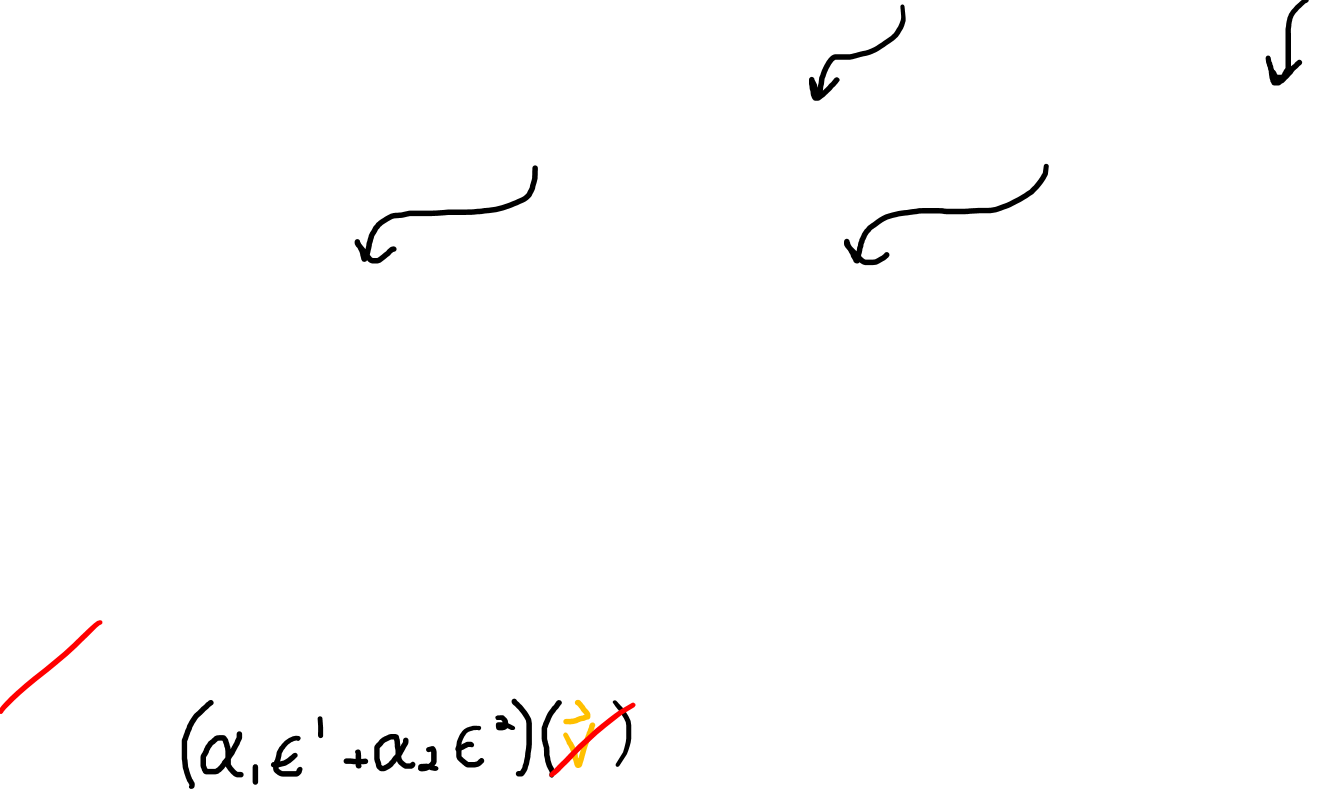 (α₁ϵ¹+α₂ϵ²)(v⃗)